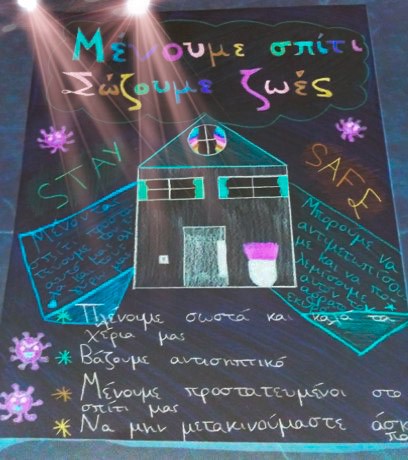 Μένουμε σπίτι
Σώζουμε ζωές
STAY
SAFE
Μένουμε
σπίτι
Μπορούμε να
αντιμετωπίσου
με και να πο
λεμήσουμε
αυτόν τον
αόρατο
εχθρό
* Πλένουμε σωστά και καλά τα
χέρια μας
* Βάζουμε αντισηπτικό
* Μένουμε προστατευμένοι στο
σπίτι μας
* Να μην μετακινούμαστε